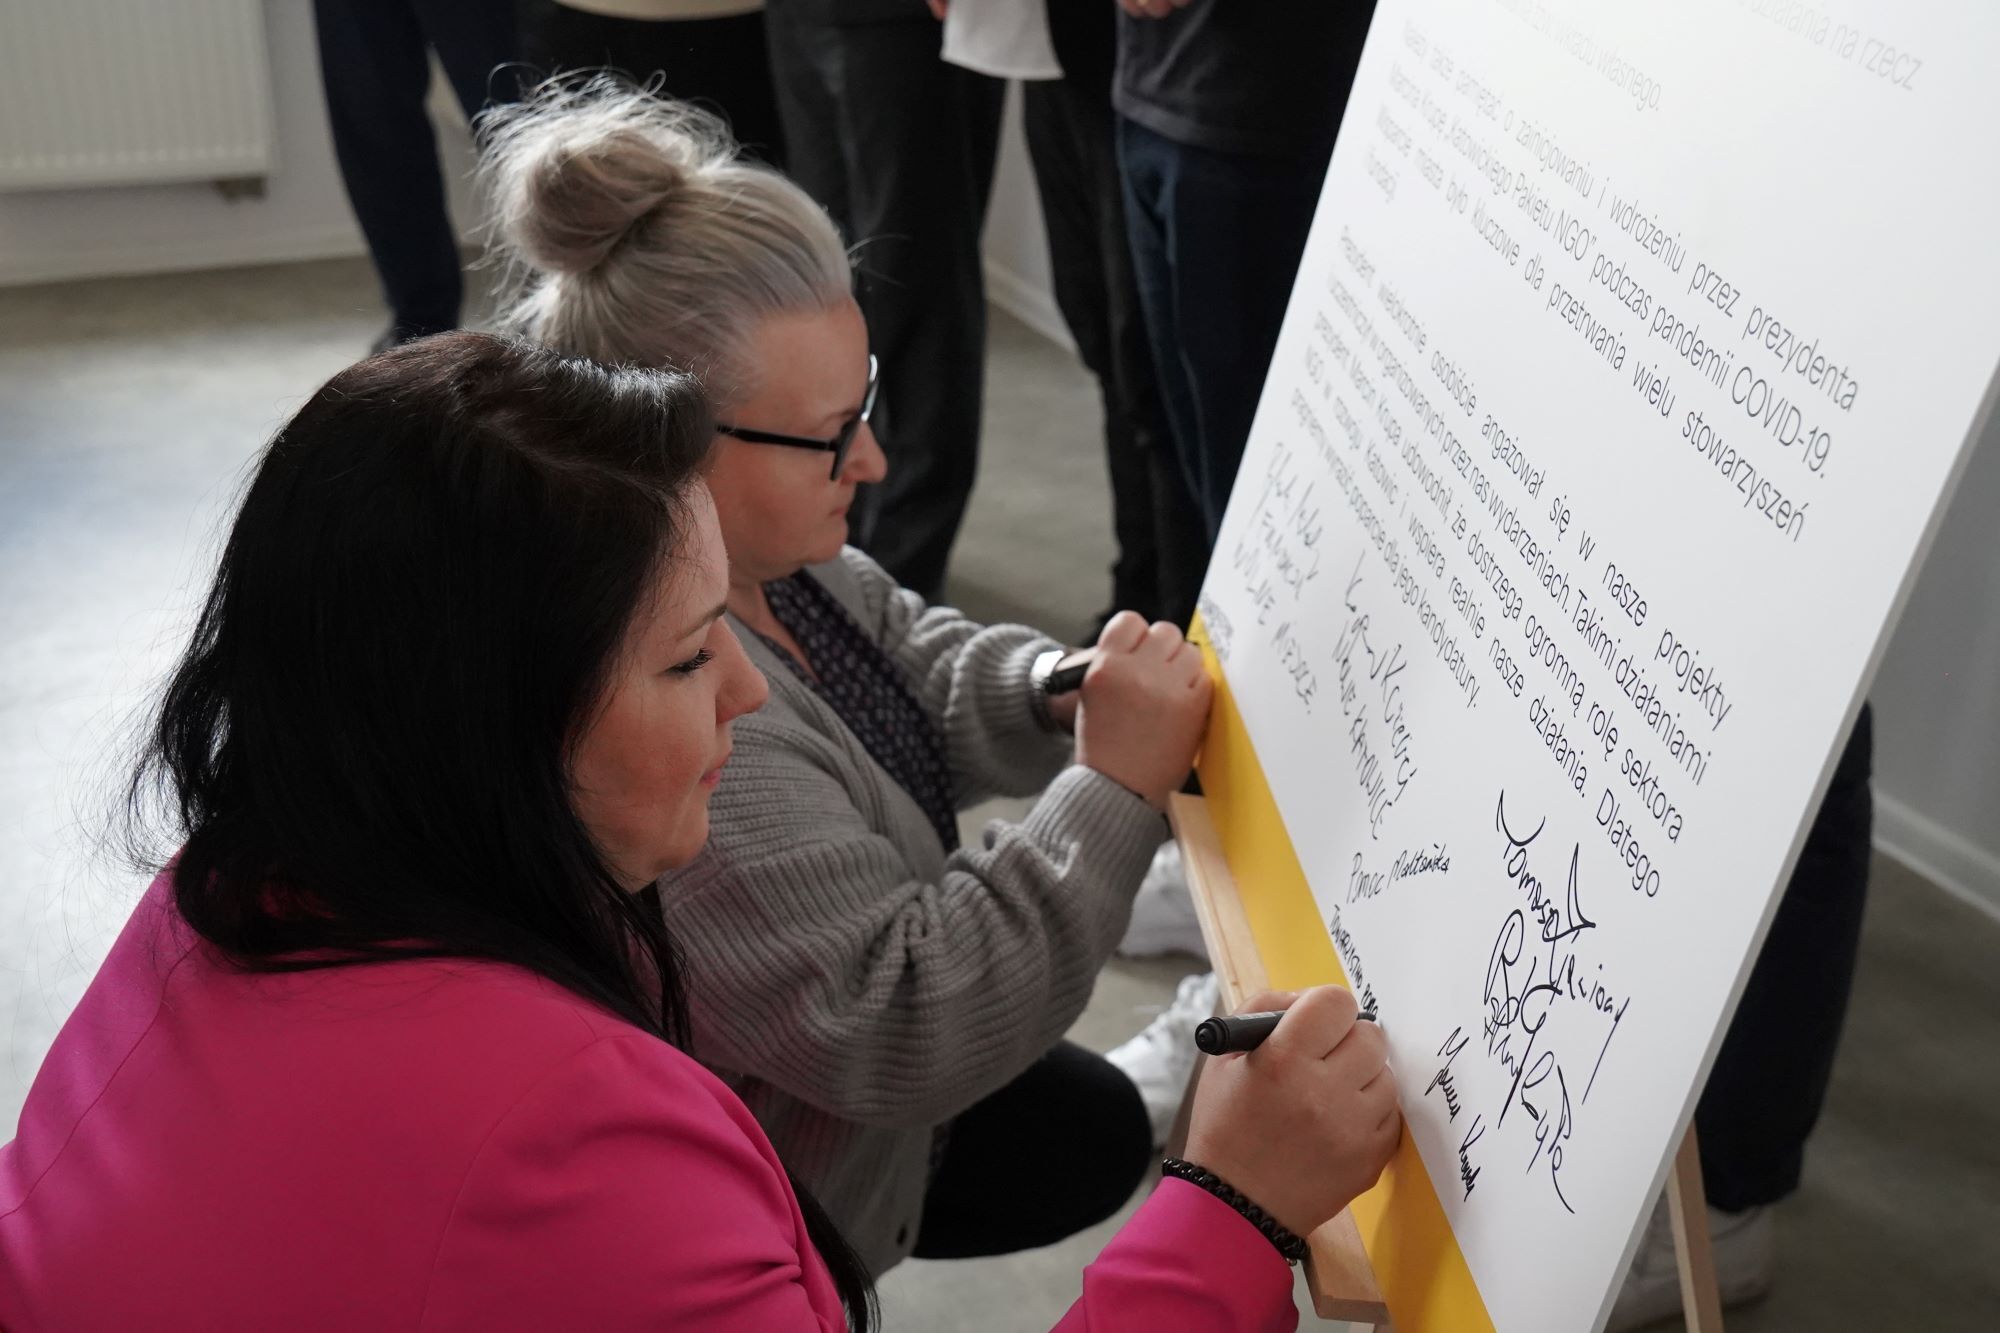 działania na rzecz
wkładu własnego.
Należy także pamiętać o zainicjowaniu i wdrożeniu przez prezydenta
Marcina Krupę „Katowickiego Pakietu NGO” podczas pandemii COVID-19.
Wsparcie miasta było kluczowe dla przetrwania wielu stowarzyszeń
i fundacji.
Prezydent wielokrotnie osobiście angażował się w nasze projekty
i uczestniczył w organizowanych przez nas wydarzeniach. Takimi działaniami
prezydent Marcin Krupa udowodnił, że dostrzega ogromną rolę sektora
NGO w rozwoju Katowic i wspiera realnie nasze działania. Dlatego
pragniemy wyrazić poparcie dla jego kandydatury.
WOLNE MIEJSCE.
Pomoc Maltańska
TOWARZYSTWO
Tomasz